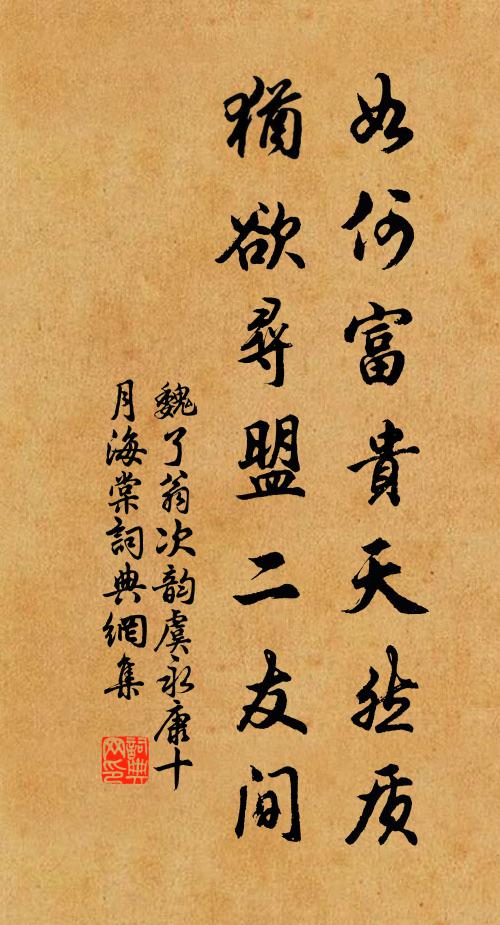 如何富貴天然质
猶欲尋盟二友間
魏了翁次韵虞永康十
月海棠詞典網集
詞典网印